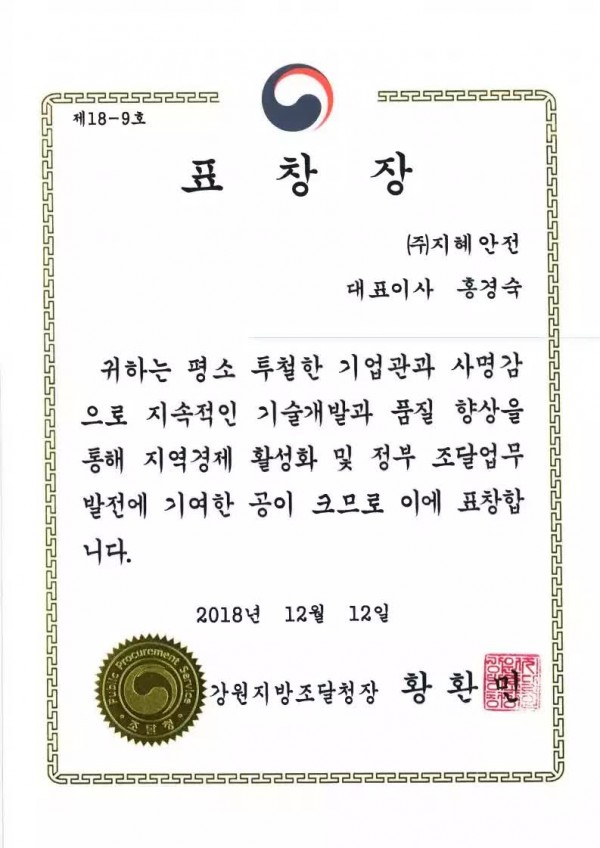 제18-9호
표 창 장
(주)지혜안전
대표이사 홍경숙
귀하는 평소 투철한 기업관과 사명감
으로 지속적인 기술개발과 품질 향상을
통해 지역경제 활성화 및 정부 조달업무
발전에 기여한 공이 크므로 이에 표창합
니다.
2018년 12월 12일
Public Procurement Service
조달청
강원지방조달청장 황환민